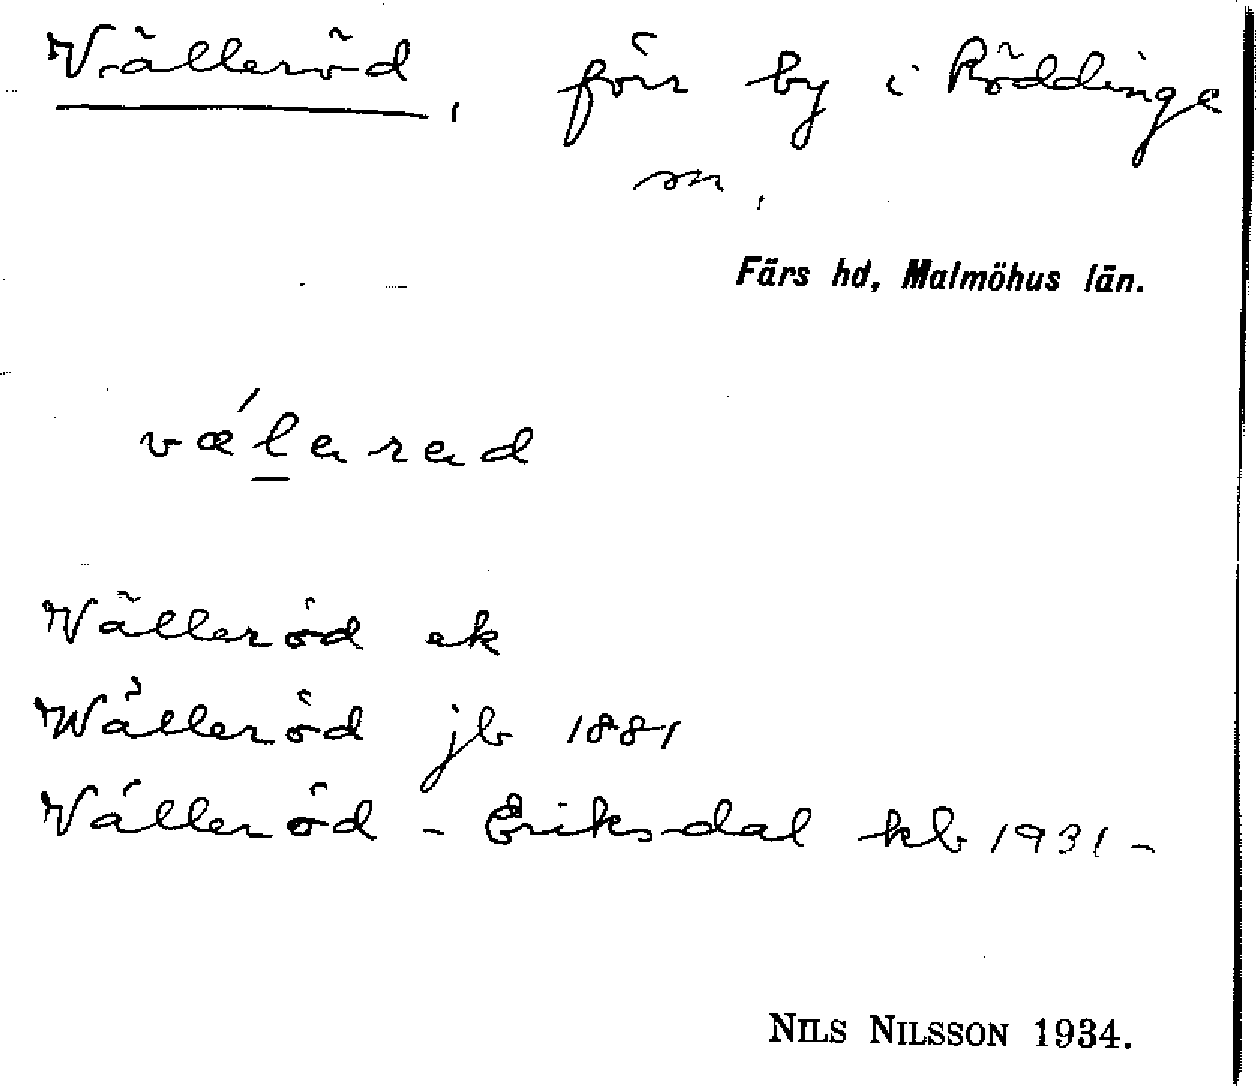 Välleröd, förr by i Röddinge
sn,
Färs hd, Malmöhus län.
væ´larad
Välleröd ek
Wälleröd jb 1881
Välleröd - Eriksdal kb 1931-
NILS NILSSON 1934.